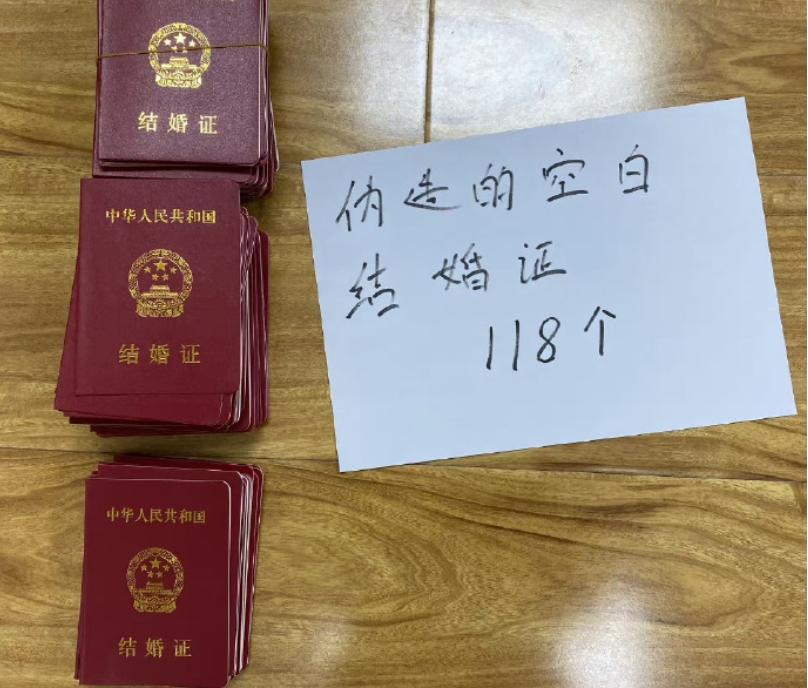 结婚证
中华人民共和国
结婚证
中华人民共和国
结婚证
伪造的空白
结婚证
118个